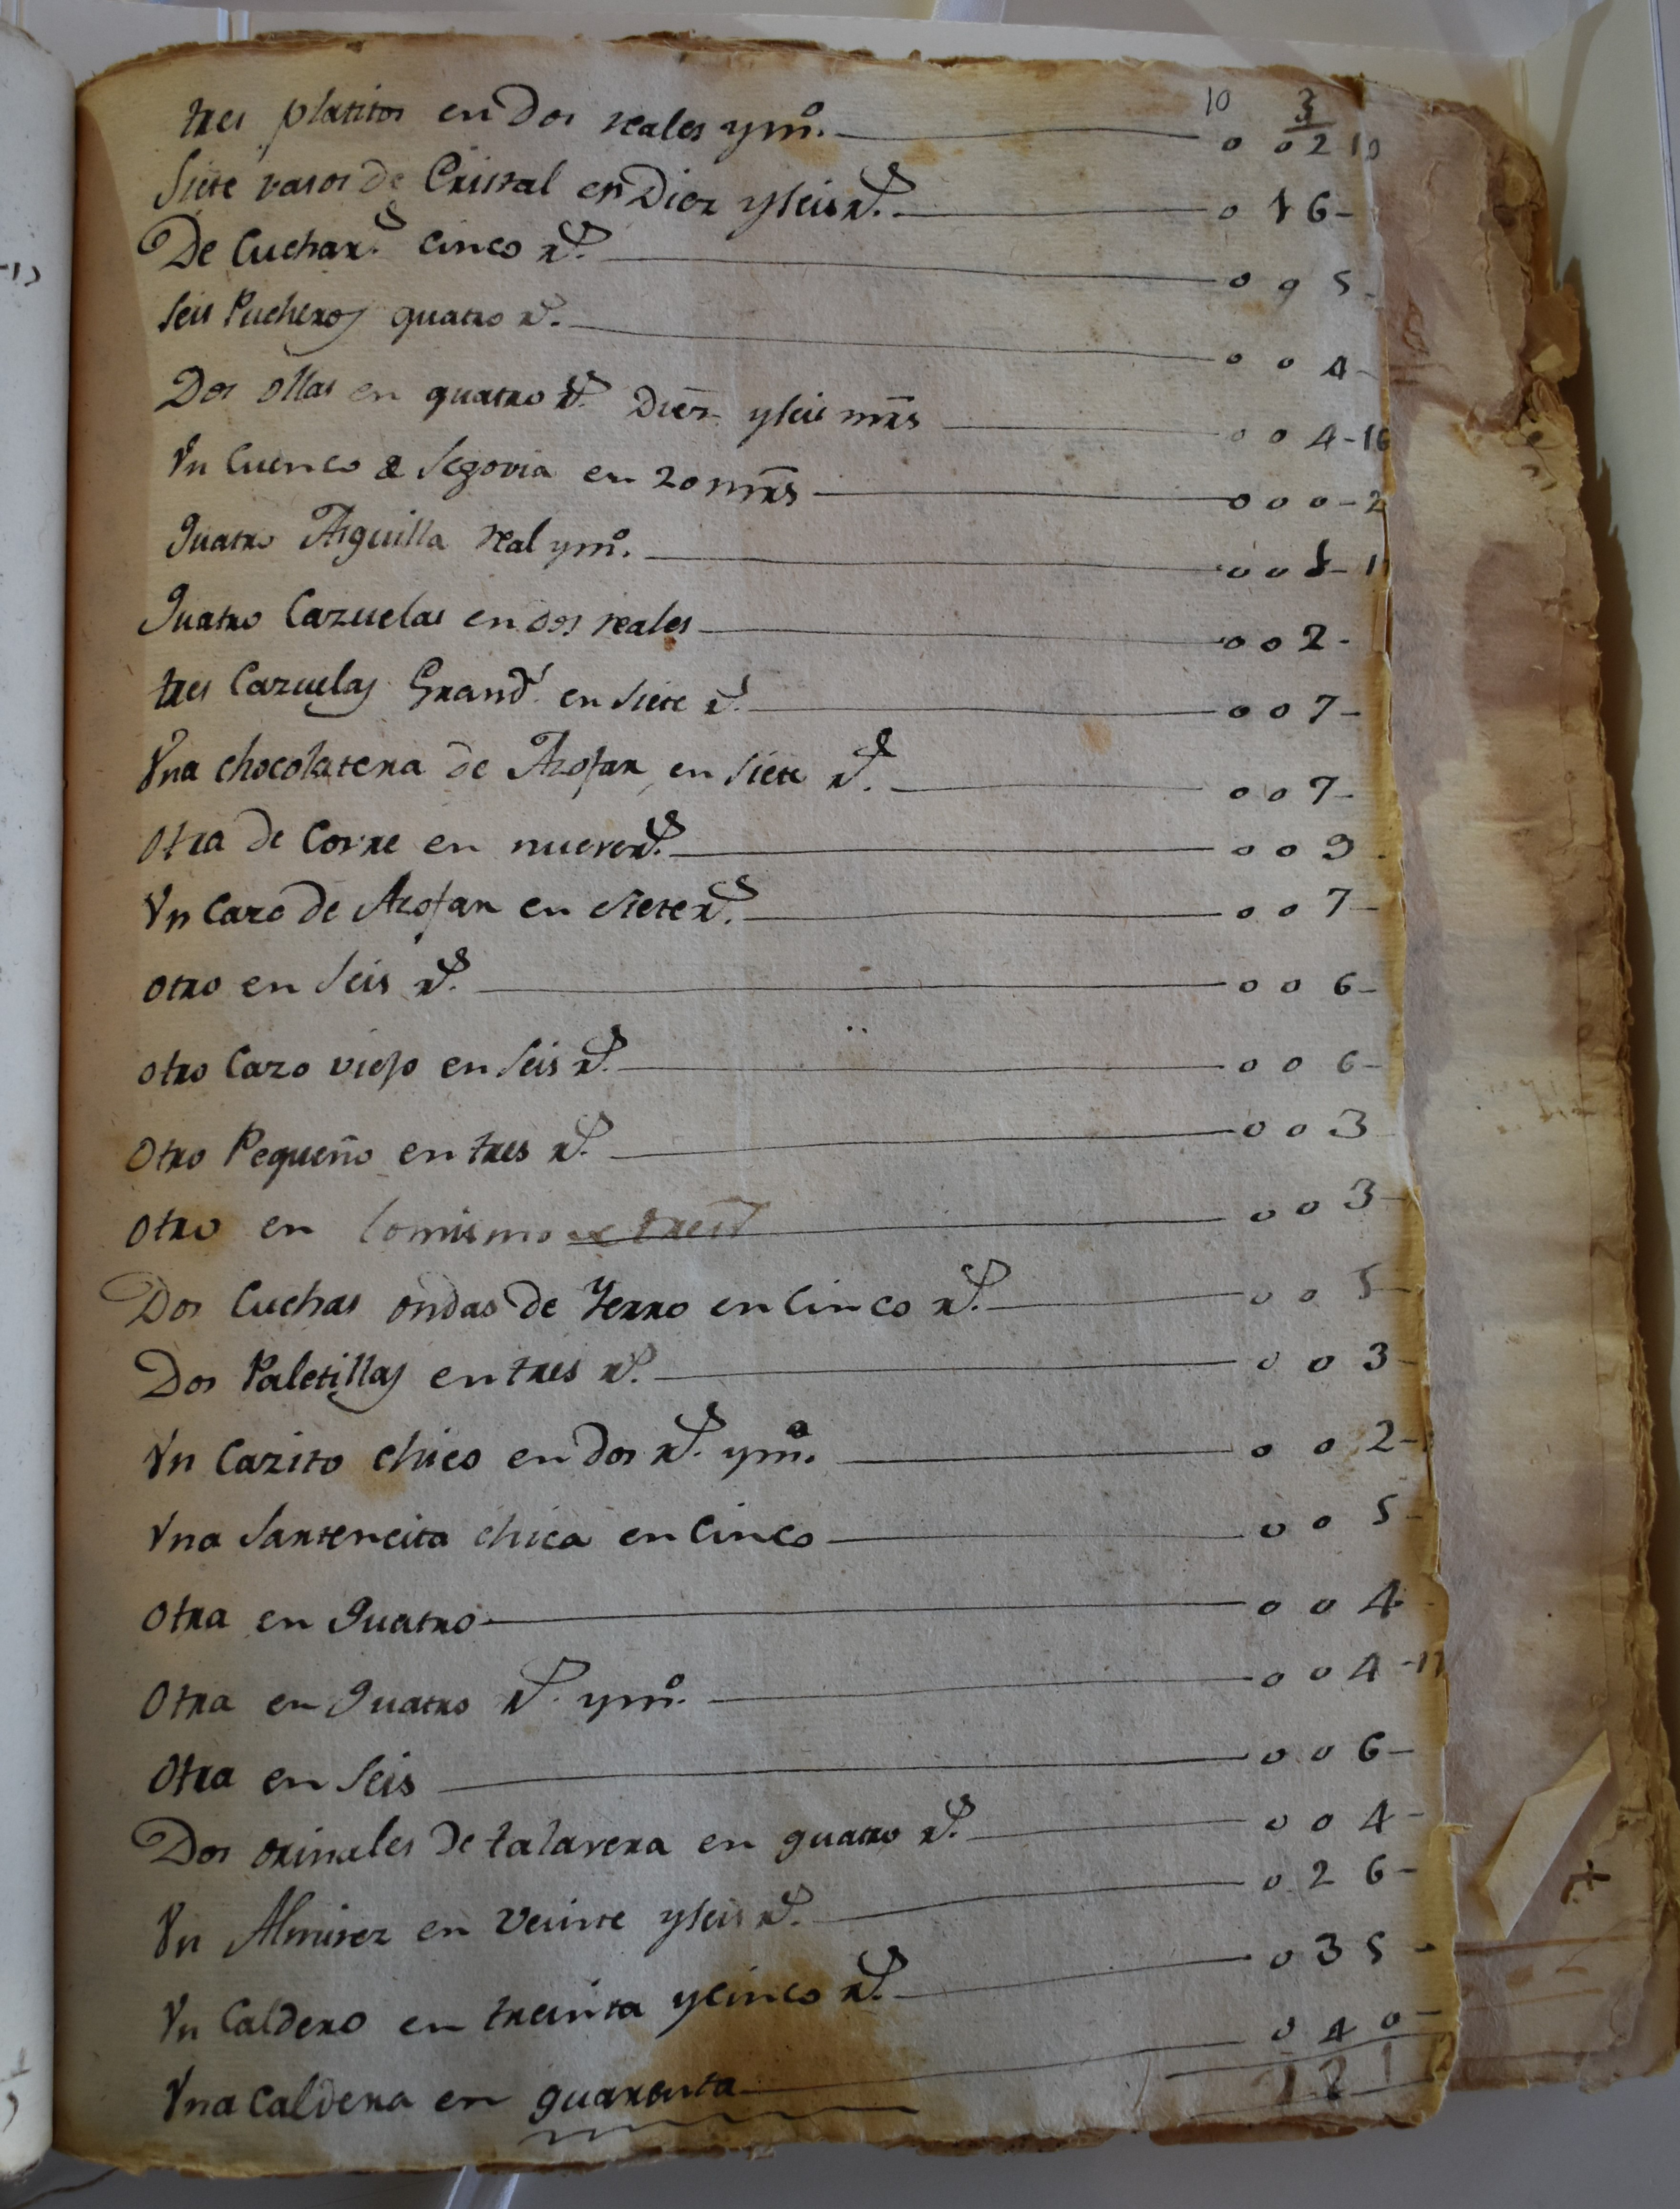 10 3
tres platitos en Dos reales y mº. 0 02 10
Siete vasos de Cristal en Diez y seis rs. 0 16-
De Cuchars. cinco rs. 0 0 5-
Seis Pucheros quatro rs. 0 0 4-
Dos ollas en quatro rs. Diez y seis mrs 0 0 4-16
Vn Cuenco de Segovia en 20 mrs 0 0 0-2
Quatro Arguilla real y mº. 0 0 1-1
Quatro Cazuelas en dos reales 0 0 2-
tres Cazuelas Grands. en siete rs. 0 0 7-
Vna chocolatera de Azofar en siete rs. 0 0 7-
Otra de Covre en nueve rs. 0 0 9
Vn Cazo de Azofar en siete rs. 0 0 7-
otro en seis rs. 0 0 6-
otro Cazo viejo en seis rs. 0 0 6-
Otro Pequeño en tres rs. 0 0 3
Otro en lo mismo 0 0 3-
Dos Cuchas ondas de Yerro en Cinco rs. 0 0 5-
Dos Paletillas en tres rs. 0 0 3-
Vn Cazito chico en dos rs. y mº. 0 0 2-
Vna Sartencita chica en Cinco 0 0 5-
Otra en Quatro 0 0 4
Otra en Quatro rs. y mº. 0 0 4-17
Otra en Seis 0 0 6-
Dos orinales de talavera en quatro rs. 0 0 4-
Vn Almirez en veinte y seis rs. 0 2 6-
Vn Caldero en treinta y cinco rs. 0 3 5-
Vna Caldera en quarenta 0 4 0-